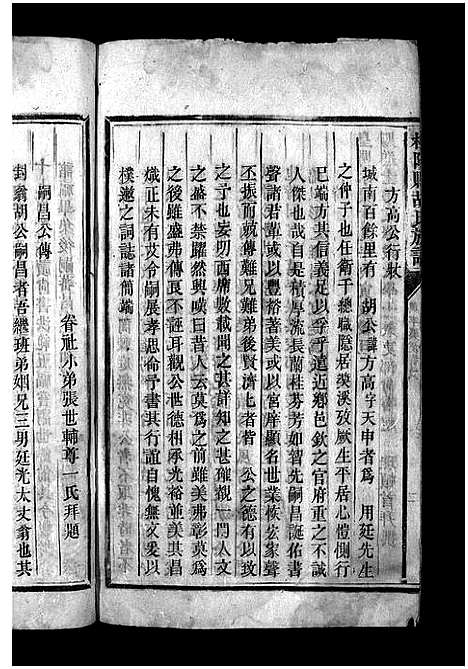 方高公行狀
城南百餘里有 胡公諱方高字天申者為 用廷先生
之仲子也任衛千總職隱居 溪 厥生平居心愷惻行
已端方其信義足以孚于遠近鄉邑欽之官府重之不誠
人傑也哉自是積厚流長蘭桂芬芳如智先嗣昌誕佑書
聲諸君輩或以豐裕著或以宮庠顯名世業恢宏家聲
丕振而競傳難兄難弟後賢濟上者皆 公之德有以致
之也予忝叨西席數載聞之甚詳知之甚確觀一門人文
之盛不禁躍然興嘆曰昔人云莫為之前雖美弗彰莫為
之後雖盛弗傳良不誣耳觀公世德相承光裕並美其昌
熾正未有艾今嗣展孝思命予書其行誼自愧無文爰以
樸遬之詞誌諸簡端
眷祉小弟張世輔尊一氏拜題
嗣昌公傳
封翁胡公嗣昌者吾繼班弟姻兄三男廷光太丈翁也其